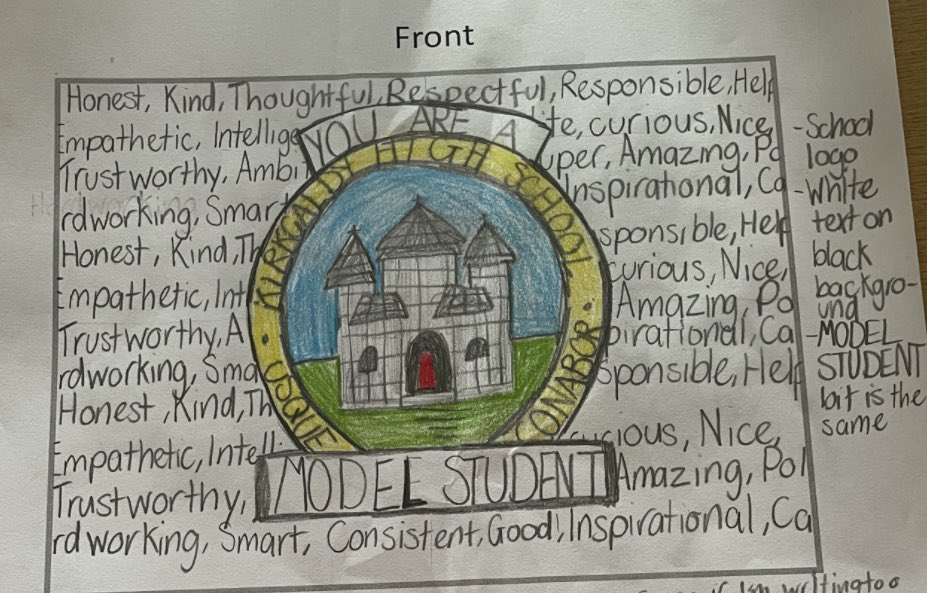 Front
Honest, Kind, Thoughtful, Respectful, Responsible, Help
Empathetic, Intellige
YOU ARE A
te, curious, Nice,
Trustworthy, Ambi
uper, Amazing, Po
Hardworking
rdworking, Smar
Inspirational, Ca
KIRKCALDY HIGH SCHOOL
Honest, Kind, Th
sponsible, Help
Empathetic, Int
curious, Nice,
Trustworthy, A
Amazing, Po
rdworking, Sma
pirational, Ca
Honest, Kind, Th
sponsible, Help
USQUE CONABOR
Empathetic, Intelli
curious, Nice,
Trustworthy,
MODEL STUDENT
Amazing, Pol
rdworking, Smart, Consistent, Good, Inspirational, Ca
-School
logo
-white
text on
black
backgro-
und
-MODEL
STUDENT
bit is the
same
if I'm writing too